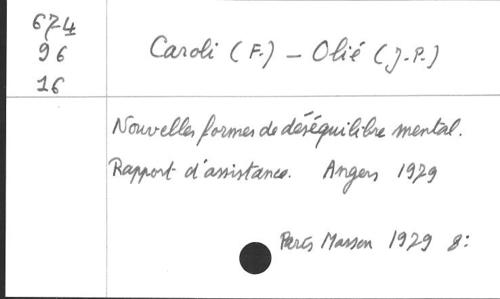 674
96
16
Caroli (F.) – Olié (J.P.)
Nouvelles formes de déséquilibre mental.
Rapport d'assistance. Angers 1979
Paris Masson 1979 8: